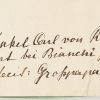 nkel Carl von R
at bei Bianchi
Decis: Grosspapa